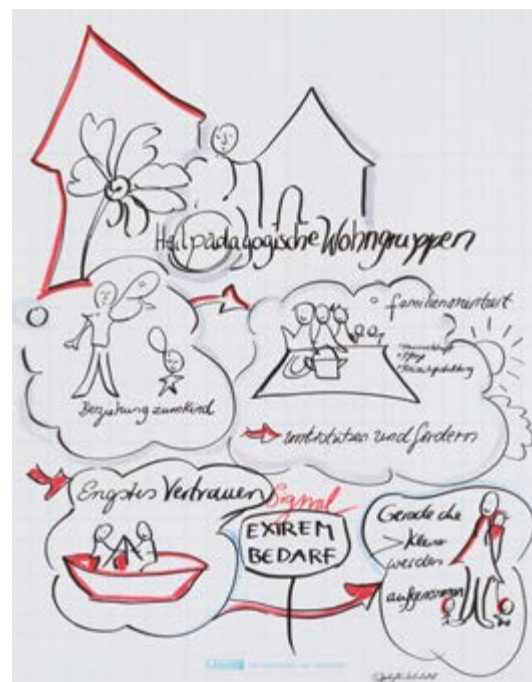 Heilpädagogische Wohngruppen
Beziehung zum Kind
familienorientiert
unterstützen und fördern
Engstes Vertrauen
Signal
EXTREM
BEDARF
Gerade die
Kleinen
werden
aufgenommen